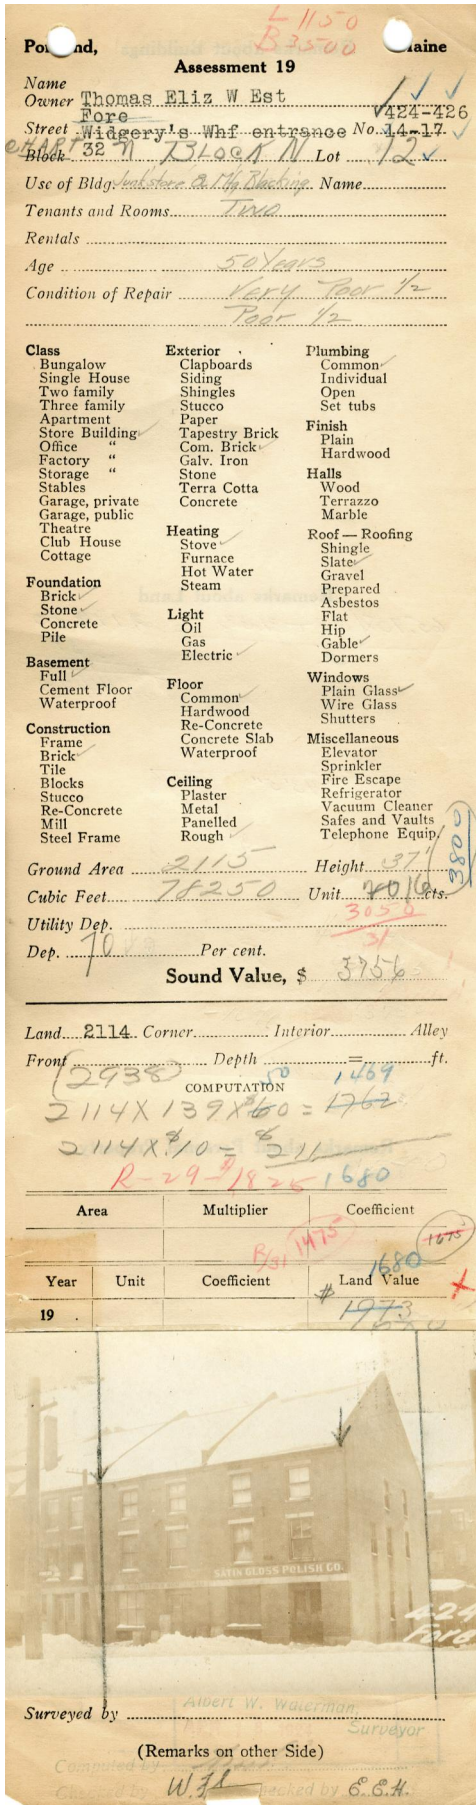 L 1150
B 3500
Portland, Maine
Assessment 19
Name
Owner Thomas Eliz W Est
Fore 424-426
Street Widgery's Whf entrance No. 14-17
CHART
Block 32 N BLOCK N Lot 12
Use of Bldg. Junkstore & Mfg Blacking Name
Tenants and Rooms Two
Rentals
Age 50 Years
Condition of Repair Very Poor 1/2
Poor 1/2
Class
Bungalow
Single House
Two family
Three family
Apartment
Store Building
Office "
Factory "
Storage "
Stables
Garage, private
Garage, public
Theatre
Club House
Cottage
Foundation
Brick
Stone
Concrete
Pile
Basement
Full
Cement Floor
Waterproof
Construction
Frame
Brick
Tile
Blocks
Stucco
Re-Concrete
Mill
Steel Frame
Exterior
Clapboards
Siding
Shingles
Stucco
Paper
Tapestry Brick
Com. Brick
Galv. Iron
Stone
Terra Cotta
Concrete
Heating
Stove
Furnace
Hot Water
Steam
Light
Oil
Gas
Electric
Floor
Common
Hardwood
Re-Concrete
Concrete Slab
Waterproof
Ceiling
Plaster
Metal
Panelled
Rough
Plumbing
Common
Individual
Open
Set tubs
Finish
Plain
Hardwood
Halls
Wood
Terrazzo
Marble
Roof — Roofing
Shingle
Slate
Gravel
Prepared
Asbestos
Flat
Hip
Gable
Dormers
Windows
Plain Glass
Wire Glass
Shutters
Miscellaneous
Elevator
Sprinkler
Fire Escape
Refrigerator
Vacuum Cleaner
Safes and Vaults
Telephone Equip.
3800
Ground Area 2115 Height 37'
Cubic Feet 78250 Unit 16 cts.
Utility Dep. 3050
31
Dep. 70 Per cent.
Sound Value, $ 3756
Land 2114 Corner Interior Alley
Front Depth = ft.
(2938) COMPUTATION 50 1469
2114 X 139 X 60 = 1762
2114 X $.10 = $ 211
R-29-$1825 1680
Area Multiplier Coefficient
R/31 1475 1675
1680
Year Unit Coefficient Land Value
19 . $ 1973
SATIN GLOSS POLISH CO.
424
Fore
Surveyed by
Albert W. Waterman,
Surveyor
(Remarks on other Side)
Computed by
Checked by E.E.H.